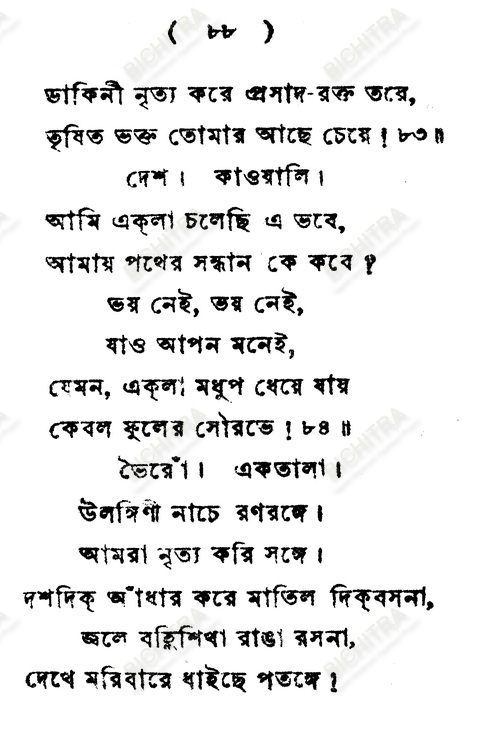 ( ৮৮ )
ডাকিনী নৃত্য করে প্রসাদ-রক্ত তরে,
তৃষিত ভক্ত তোমার আছে চেয়ে ! ৮৩॥
দেশ । কাওয়ালি ।
আমি একলা চলেছি এ ভবে,
আমায় পথের সন্ধান কে কবে ?
ভয় নেই, ভয় নেই,
যাও আপন মনেই,
যেমন, একলা মধুপ ধেয়ে যায়
কেবল ফুলের সৌরভে ! ৮৪ ॥
ভৈরোঁ । একতালা ।
উলঙ্গিণী নাচে রণরঙ্গে ।
আমরা নৃত্য করি সঙ্গে ।
দশদিক্ আঁধার করে মাতিল দিক্‌বসনা,
জ্বলে বহ্নিশিখা রাঙা রসনা,
দেখে মরিবারে ধাইছে পতঙ্গে !
BICHITRA